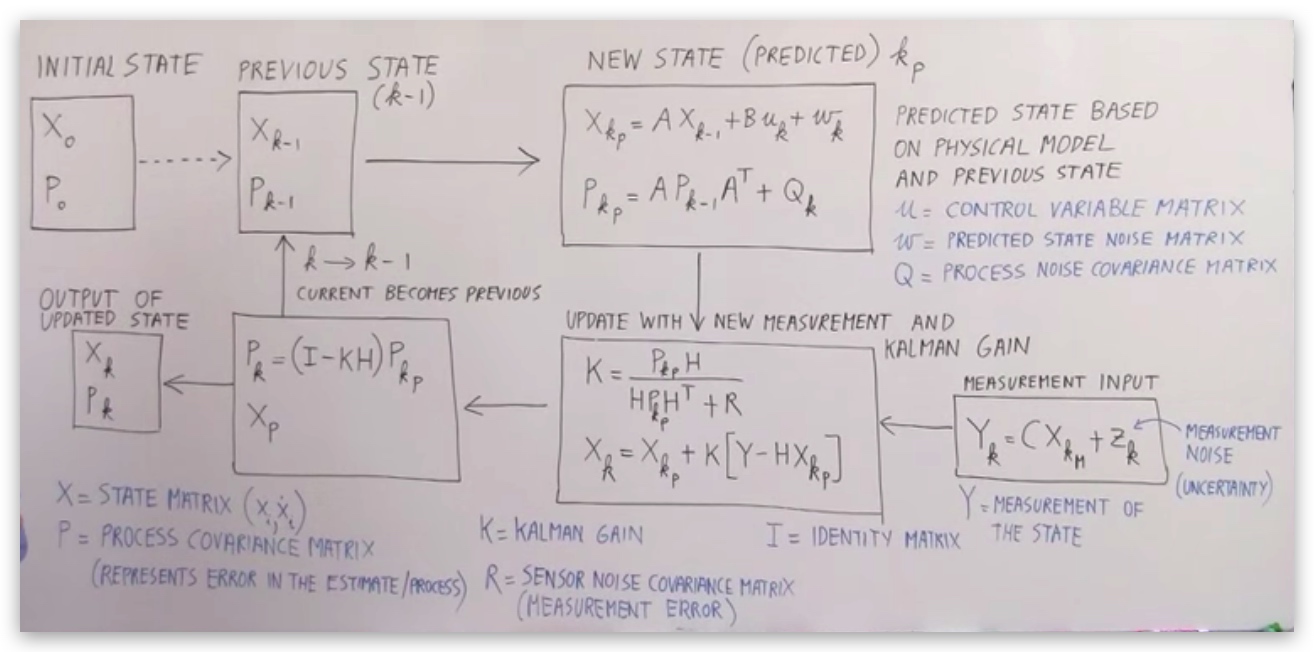 INITIAL STATE
X₀
P₀
PREVIOUS STATE
(k-1)
X_{k-1}
P_{k-1}
NEW STATE (PREDICTED) k_p
X_{k_p} = A X_{k-1} + B u_k + w_k
P_{k_p} = A P_{k-1} A^T + Q_k
PREDICTED STATE BASED
ON PHYSICAL MODEL
AND PREVIOUS STATE
u = CONTROL VARIABLE MATRIX
w = PREDICTED STATE NOISE MATRIX
Q = PROCESS NOISE COVARIANCE MATRIX
k → k-1
CURRENT BECOMES PREVIOUS
OUTPUT OF
UPDATED STATE
X_k
P_k
P_k = (I-KH) P_{k_p}
X_p
UPDATE WITH NEW MEASUREMENT AND
KALMAN GAIN
K = \frac{P_{k_p} H}{H P_{k_p} H^T + R}
X_k = X_{k_p} + K[Y - H X_{k_p}]
MEASUREMENT INPUT
Y_k = C X_{k_M} + Z_k
MEASUREMENT
NOISE
(UNCERTAINTY)
Y = MEASUREMENT OF
THE STATE
X = STATE MATRIX (x_i, ẋ_i)
P = PROCESS COVARIANCE MATRIX
(REPRESENTS ERROR IN THE ESTIMATE/PROCESS)
K = KALMAN GAIN
I = IDENTITY MATRIX
R = SENSOR NOISE COVARIANCE MATRIX
(MEASUREMENT ERROR)